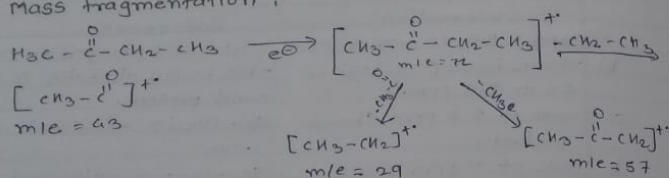 Mass fragmentation :
H3C - C - CH2 - CH3 e⊖ [CH3 - C - CH2 - CH3]+• - CH2 - CH3
O O
m/e = 72
[CH3 - C]+•
O
m/e = 43
O=C-CH3 - CH3
[CH3 - CH2]+•
m/e = 29
[CH3 - C - CH2]+•
O
m/e = 57